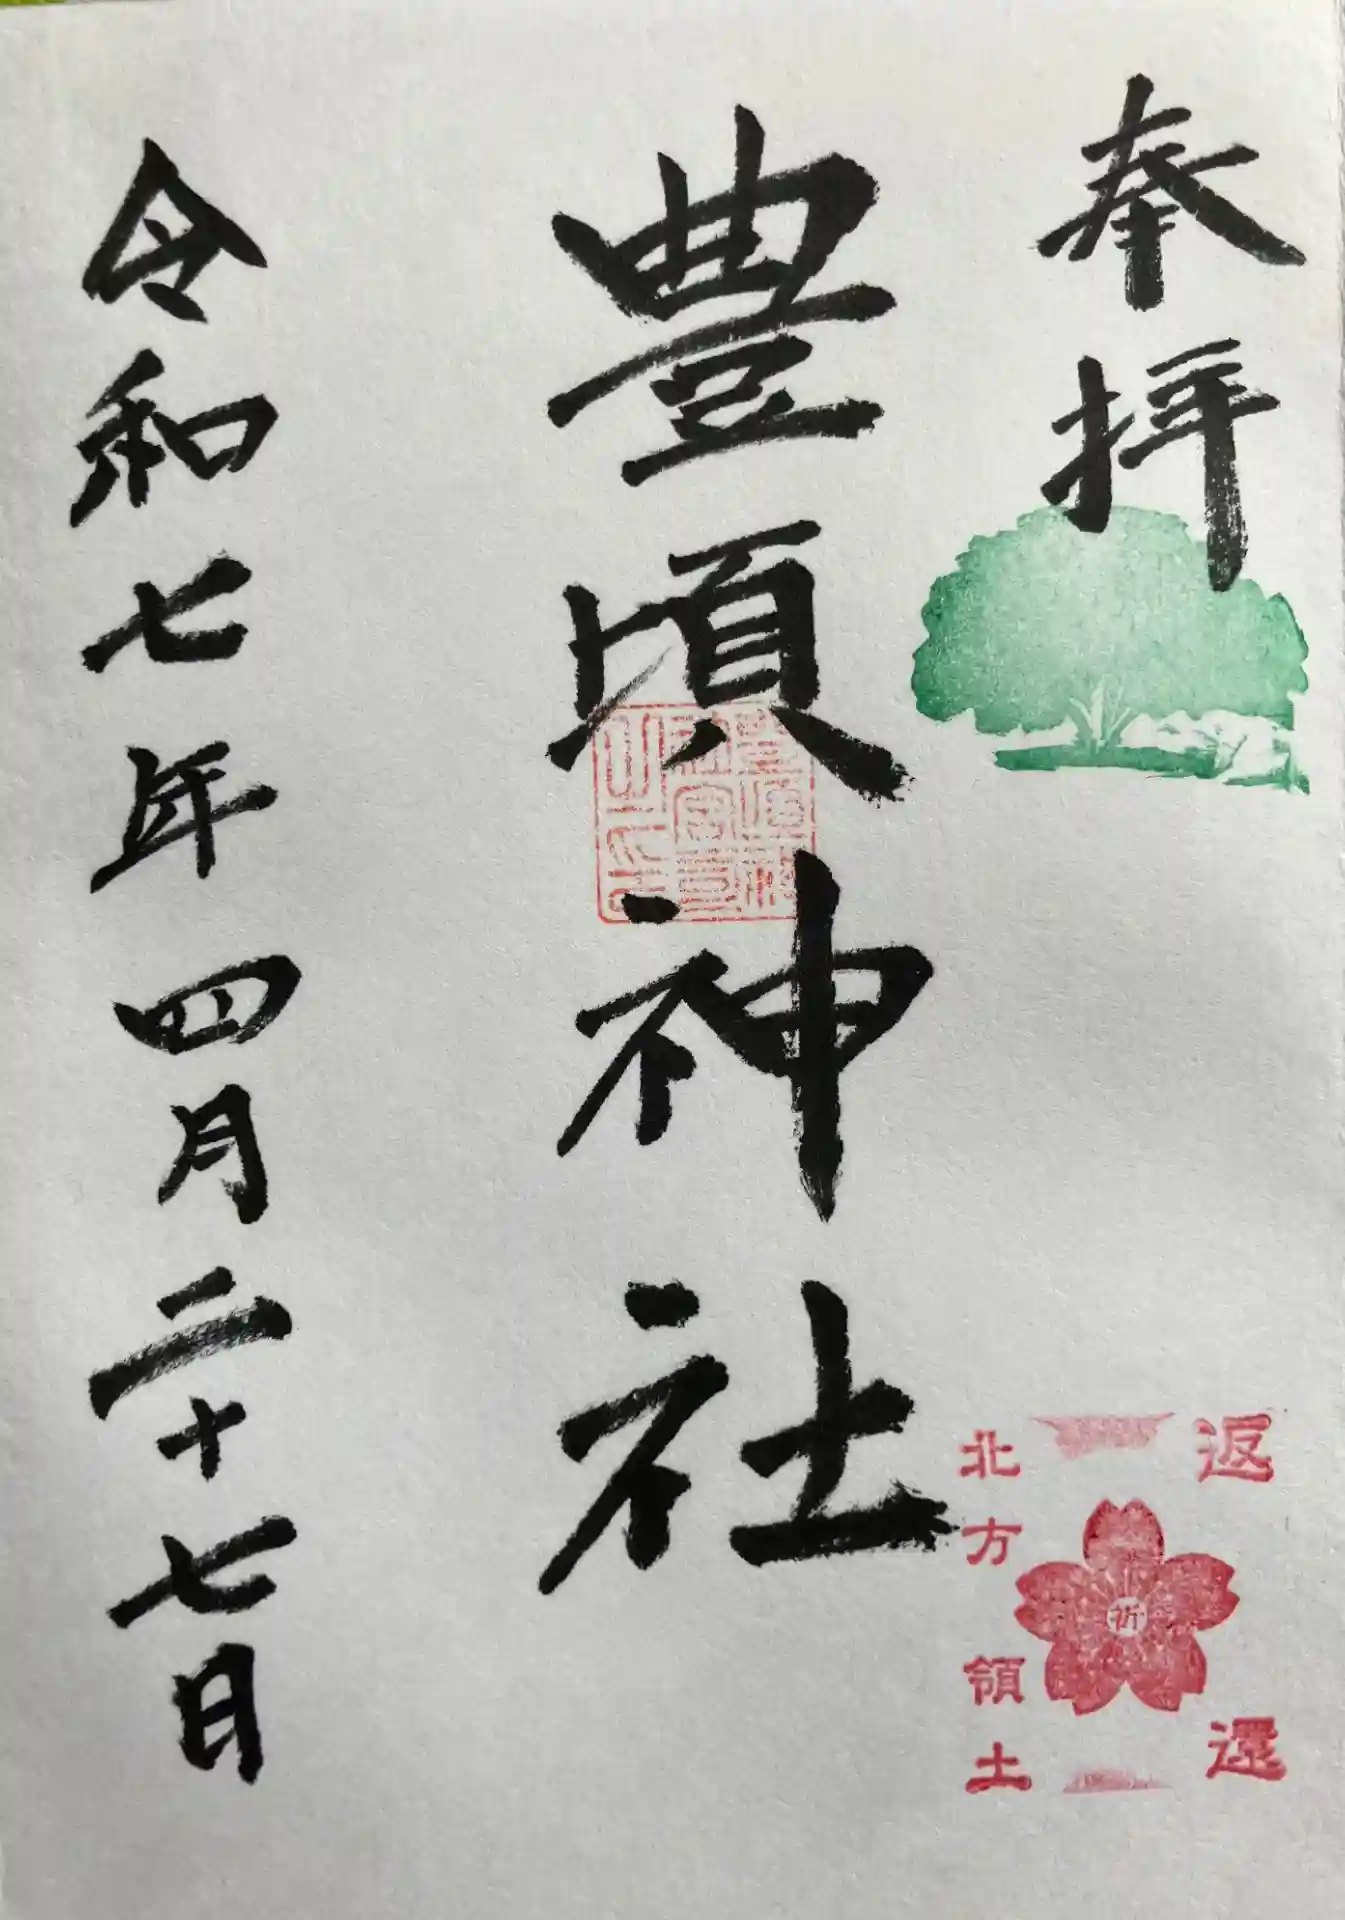 奉拝
豊頃神社
令和七年四月二十七日
返還
祈
北方領土